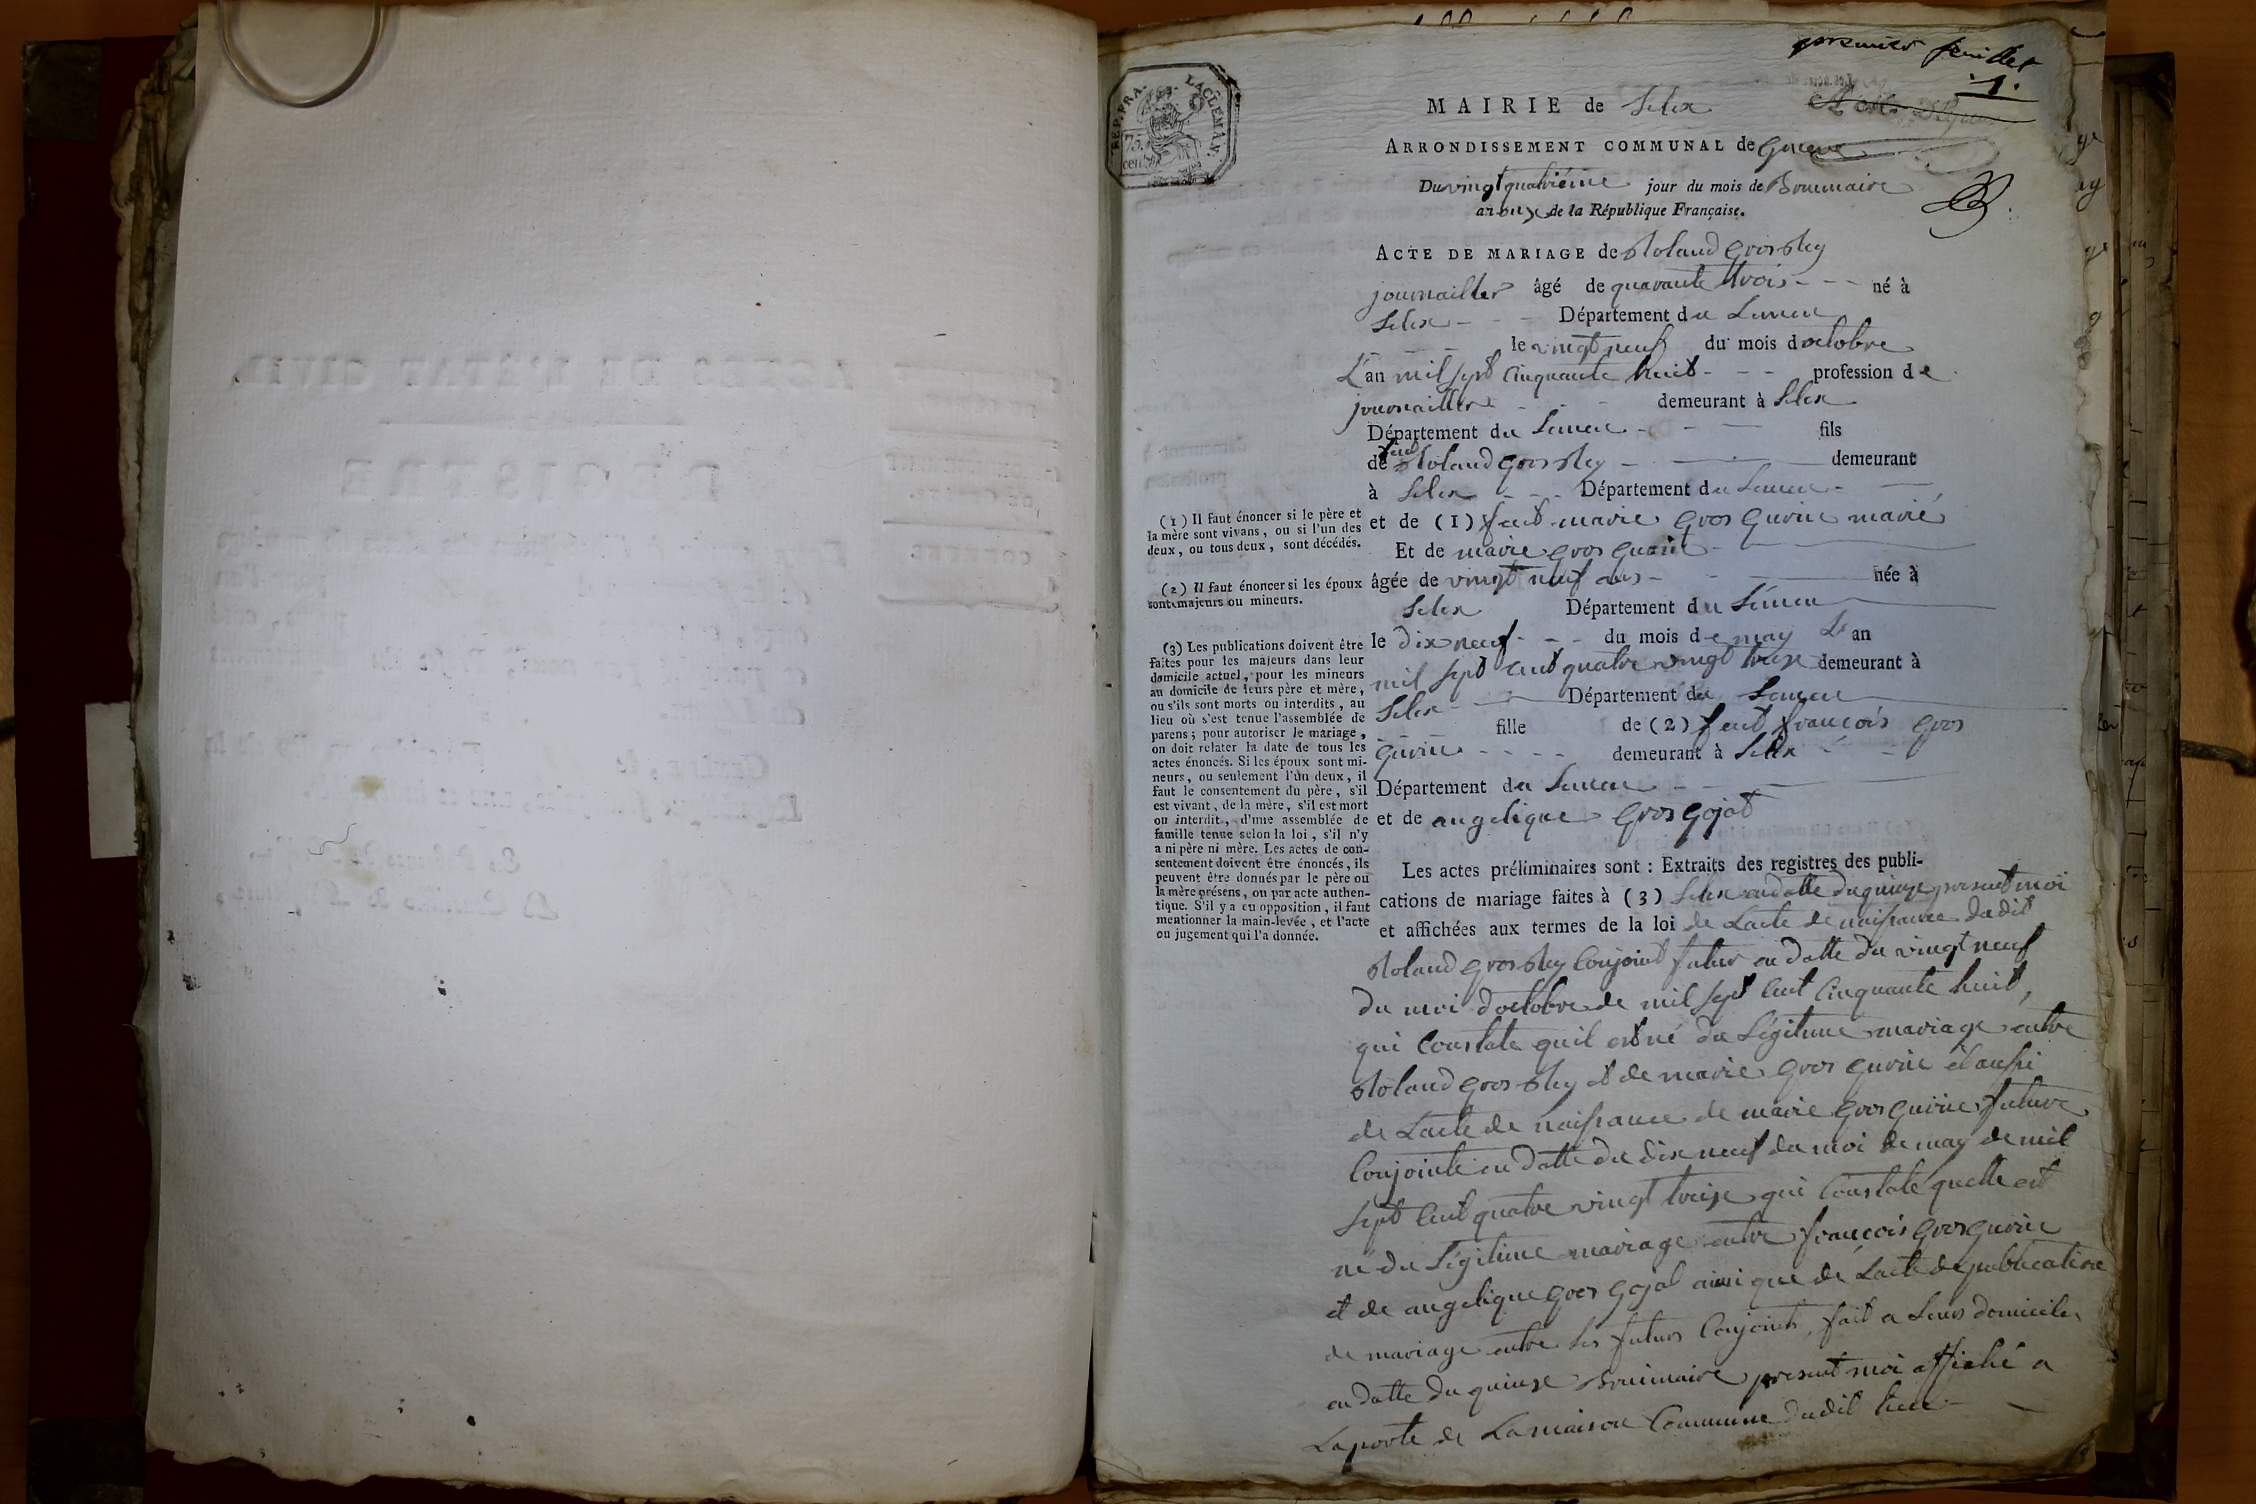 premier feuillet
1.
REP. FRA.
75.
cent.
MAIRIE de Selex
ARRONDISSEMENT COMMUNAL de Geneve
Du vingt quatrième jour du mois de Brumaire
an onze de la République Française.
ACTE DE MARIAGE de Roland gros Rey
journallier âgé de quarante trois - - - né à
Selex - - - Département du Leman
le vingt neuf du mois d octobre
L'an mil sept Cinquante huit - - - profession de
journallier - - - demeurant à Selex
Département du Leman - - - fils
de feu Roland gros Rey - demeurant
à Selex - - - Département du Leman -
et de (1) feut marie gros gurin marié
Et de marie gros gurin -
âgée de vingt neuf ans - née à
Selex Département du Leman
le dix neuf - - - du mois de may L'an
mil sept cent quatre vingt treize demeurant à
Selex - Département du Leman
fille de (2) feut françois gros
gurin - - - - demeurant à Selex - -
Département du Leman - - -
et de angelique gros gojat
Les actes préliminaires sont : Extraits des registres des publi-
cations de mariage faites à (3) Selex en datte du quinze present moi
et affichées aux termes de la loi de Lacte de naissance dudit
Roland gros Rey Conjoint futur en datte du vingt neuf
du moi d'octobre de mil sept Cent Cinquante huit,
qui Constate quil est né du Légitime mariage entre
Roland gros Rey et de marie gros gurin et aussi
de Lacte de naissance de marie gros gurin future
Conjointe en datte du dix neuf du moi de may de mil
sept Cent quatre vingt treize qui Constate quelle est
né du Légitime mariage entre françois gros gurin
et de angelique gros gojat ainsi que de Lacte de publication
de mariage entre les futurs Conjoints, fait a Leurs domiciles
en datte du quinze Brumaire present moi affiché a
La porte de La maison Commune dudit Lieu -
(1) Il faut énoncer si le père et
la mère sont vivans, ou si l'un des
deux, ou tous deux, sont décédés.
(2) Il faut énoncer si les époux
sont majeurs ou mineurs.
(3) Les publications doivent être
faites pour les majeurs dans leur
domicile actuel, pour les mineurs
au domicile de leurs père et mère,
ou s'ils sont morts ou interdits, au
lieu où s'est tenue l'assemblée de
parens ; pour autoriser le mariage,
on doit relater la date de tous les
actes énoncés. Si les époux sont mi-
neurs, ou seulement l'un deux, il
faut le consentement du père, s'il
est vivant, de la mère, s'il est mort
ou interdit, d'une assemblée de
famille tenue selon la loi, s'il n'y
a ni père ni mère. Les actes de con-
sentement doivent être énoncés, ils
peuvent être donnés par le père ou
la mère présens, ou par acte authen-
tique. S'il y a eu opposition, il faut
mentionner la main-levée, et l'acte
ou jugement qui l'a donnée.